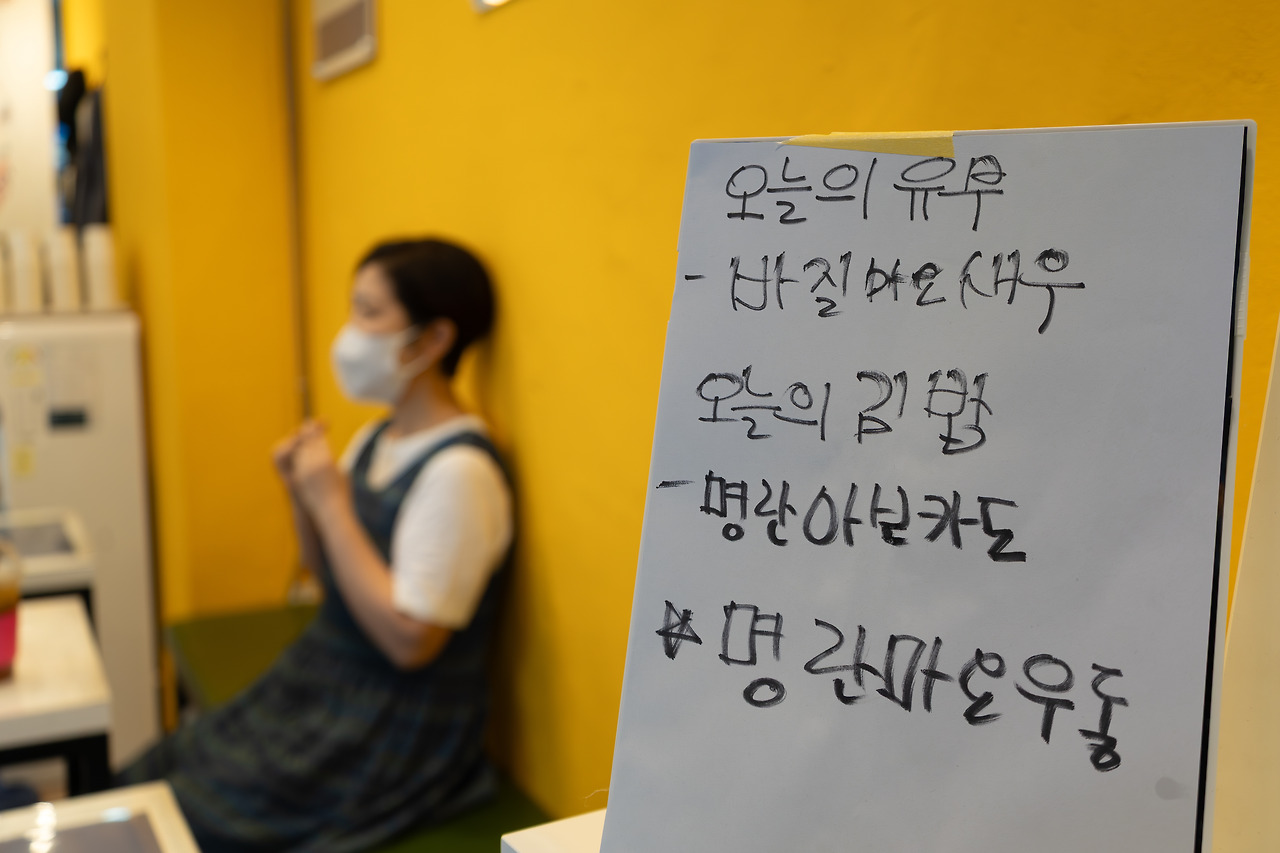 오늘의 유부
- 바질마요새우
오늘의 김밥
- 명란아보카도
* 명란마요우동